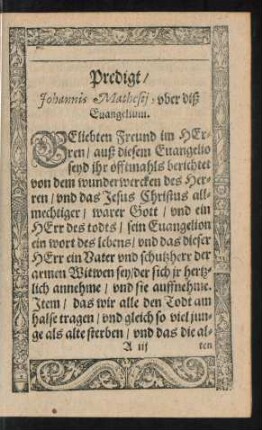 Predigt/
Johannis Mathesij, vber diß
Euangelium.
GEliebten Freund im HEr-
ren/ auß diesem Euangelio
seyd jhr offtmahls berichtet
von dem wunderwercken des Her-
ren/ vnd das Jesus Christus all-
mechtiger/ warer Gott / vnd ein
HErr des todts / sein Euangelion
ein wort des lebens/ vnd das dieser
HErr ein Vater vnd schutzherr der
armen Witwen sey/ der sich jr hertz-
lich annehme / vnd sie auffnehme.
Item / das wir alle den Todt am
halse tragen / vnd gleich so viel jun-
ge als alte sterben / vnd das die al-
A iij ten